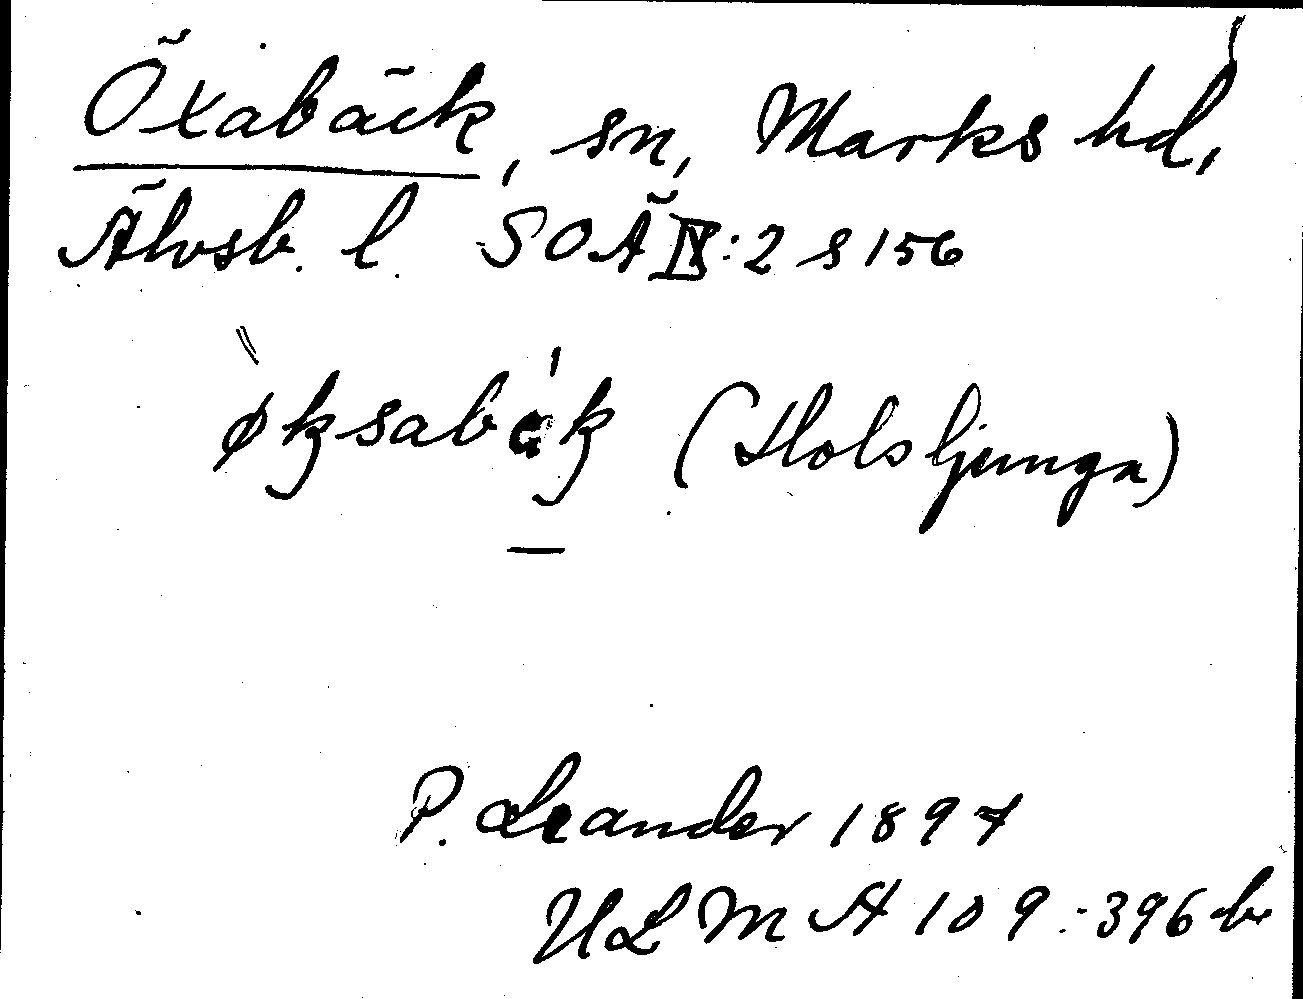 Öxabäck, sn, Marks hd,
Älvsb. l. SOÄ IX:2 s 156
øksabäk (Holsljunga)
P. Leander 1897
ULMA 109:396 b